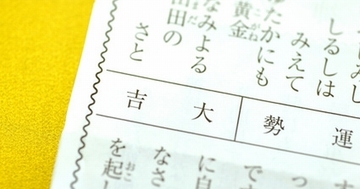 しるしは
みえて
たかにも
黄金
なみよる
田の
さと
運勢
大吉
っ
です
に自
なさ
を起し